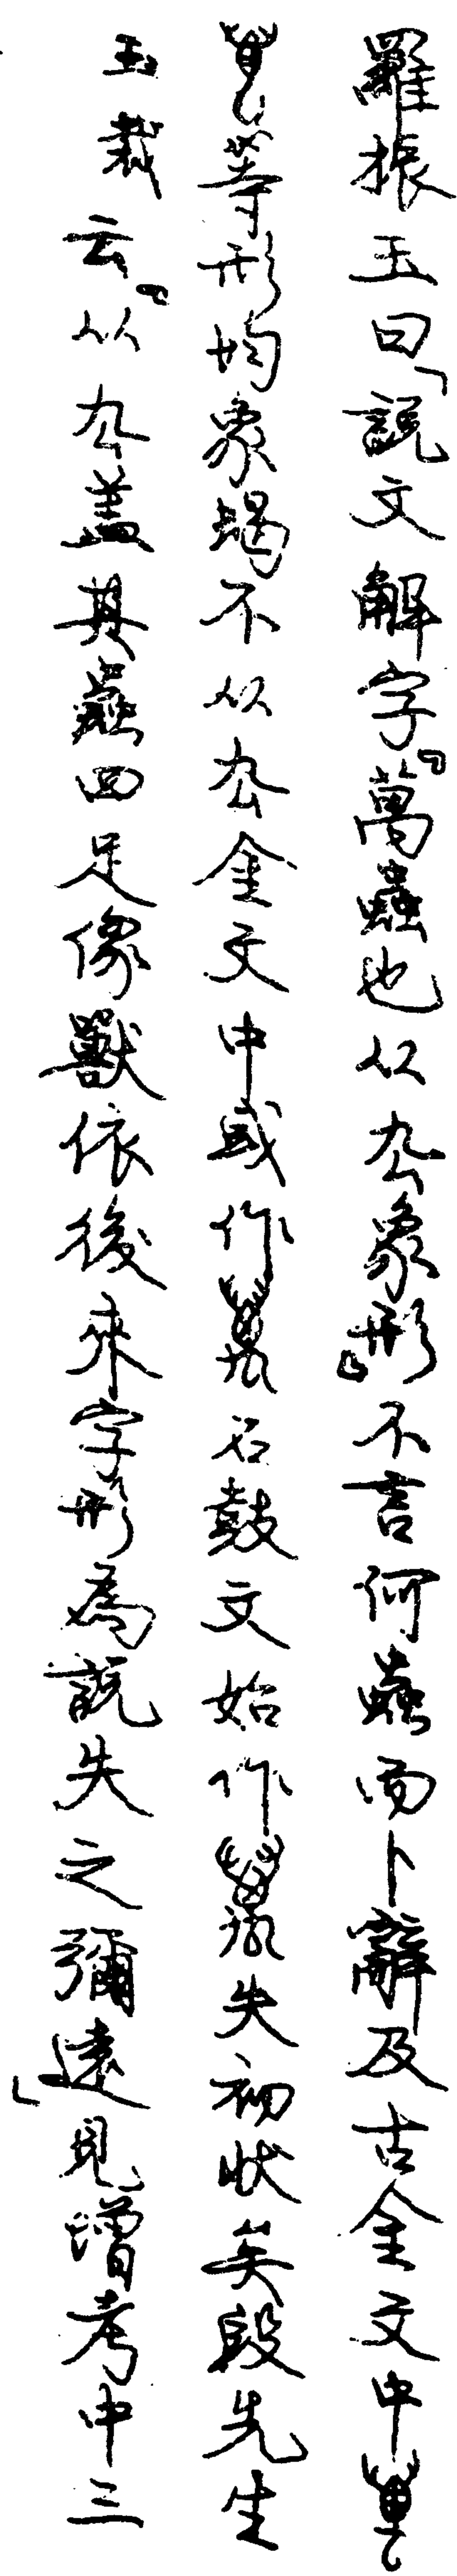 羅振玉曰「說文解字『萬蟲也从厹象形』不言何蟲而卜辭及古金文中
等形均象蝎不从厹金文中或作石鼓文始作失初狀矣段先生
玉裁云『从厹蓋其蟲四足像獸依後來字形為說失之彌遠」見增考中三